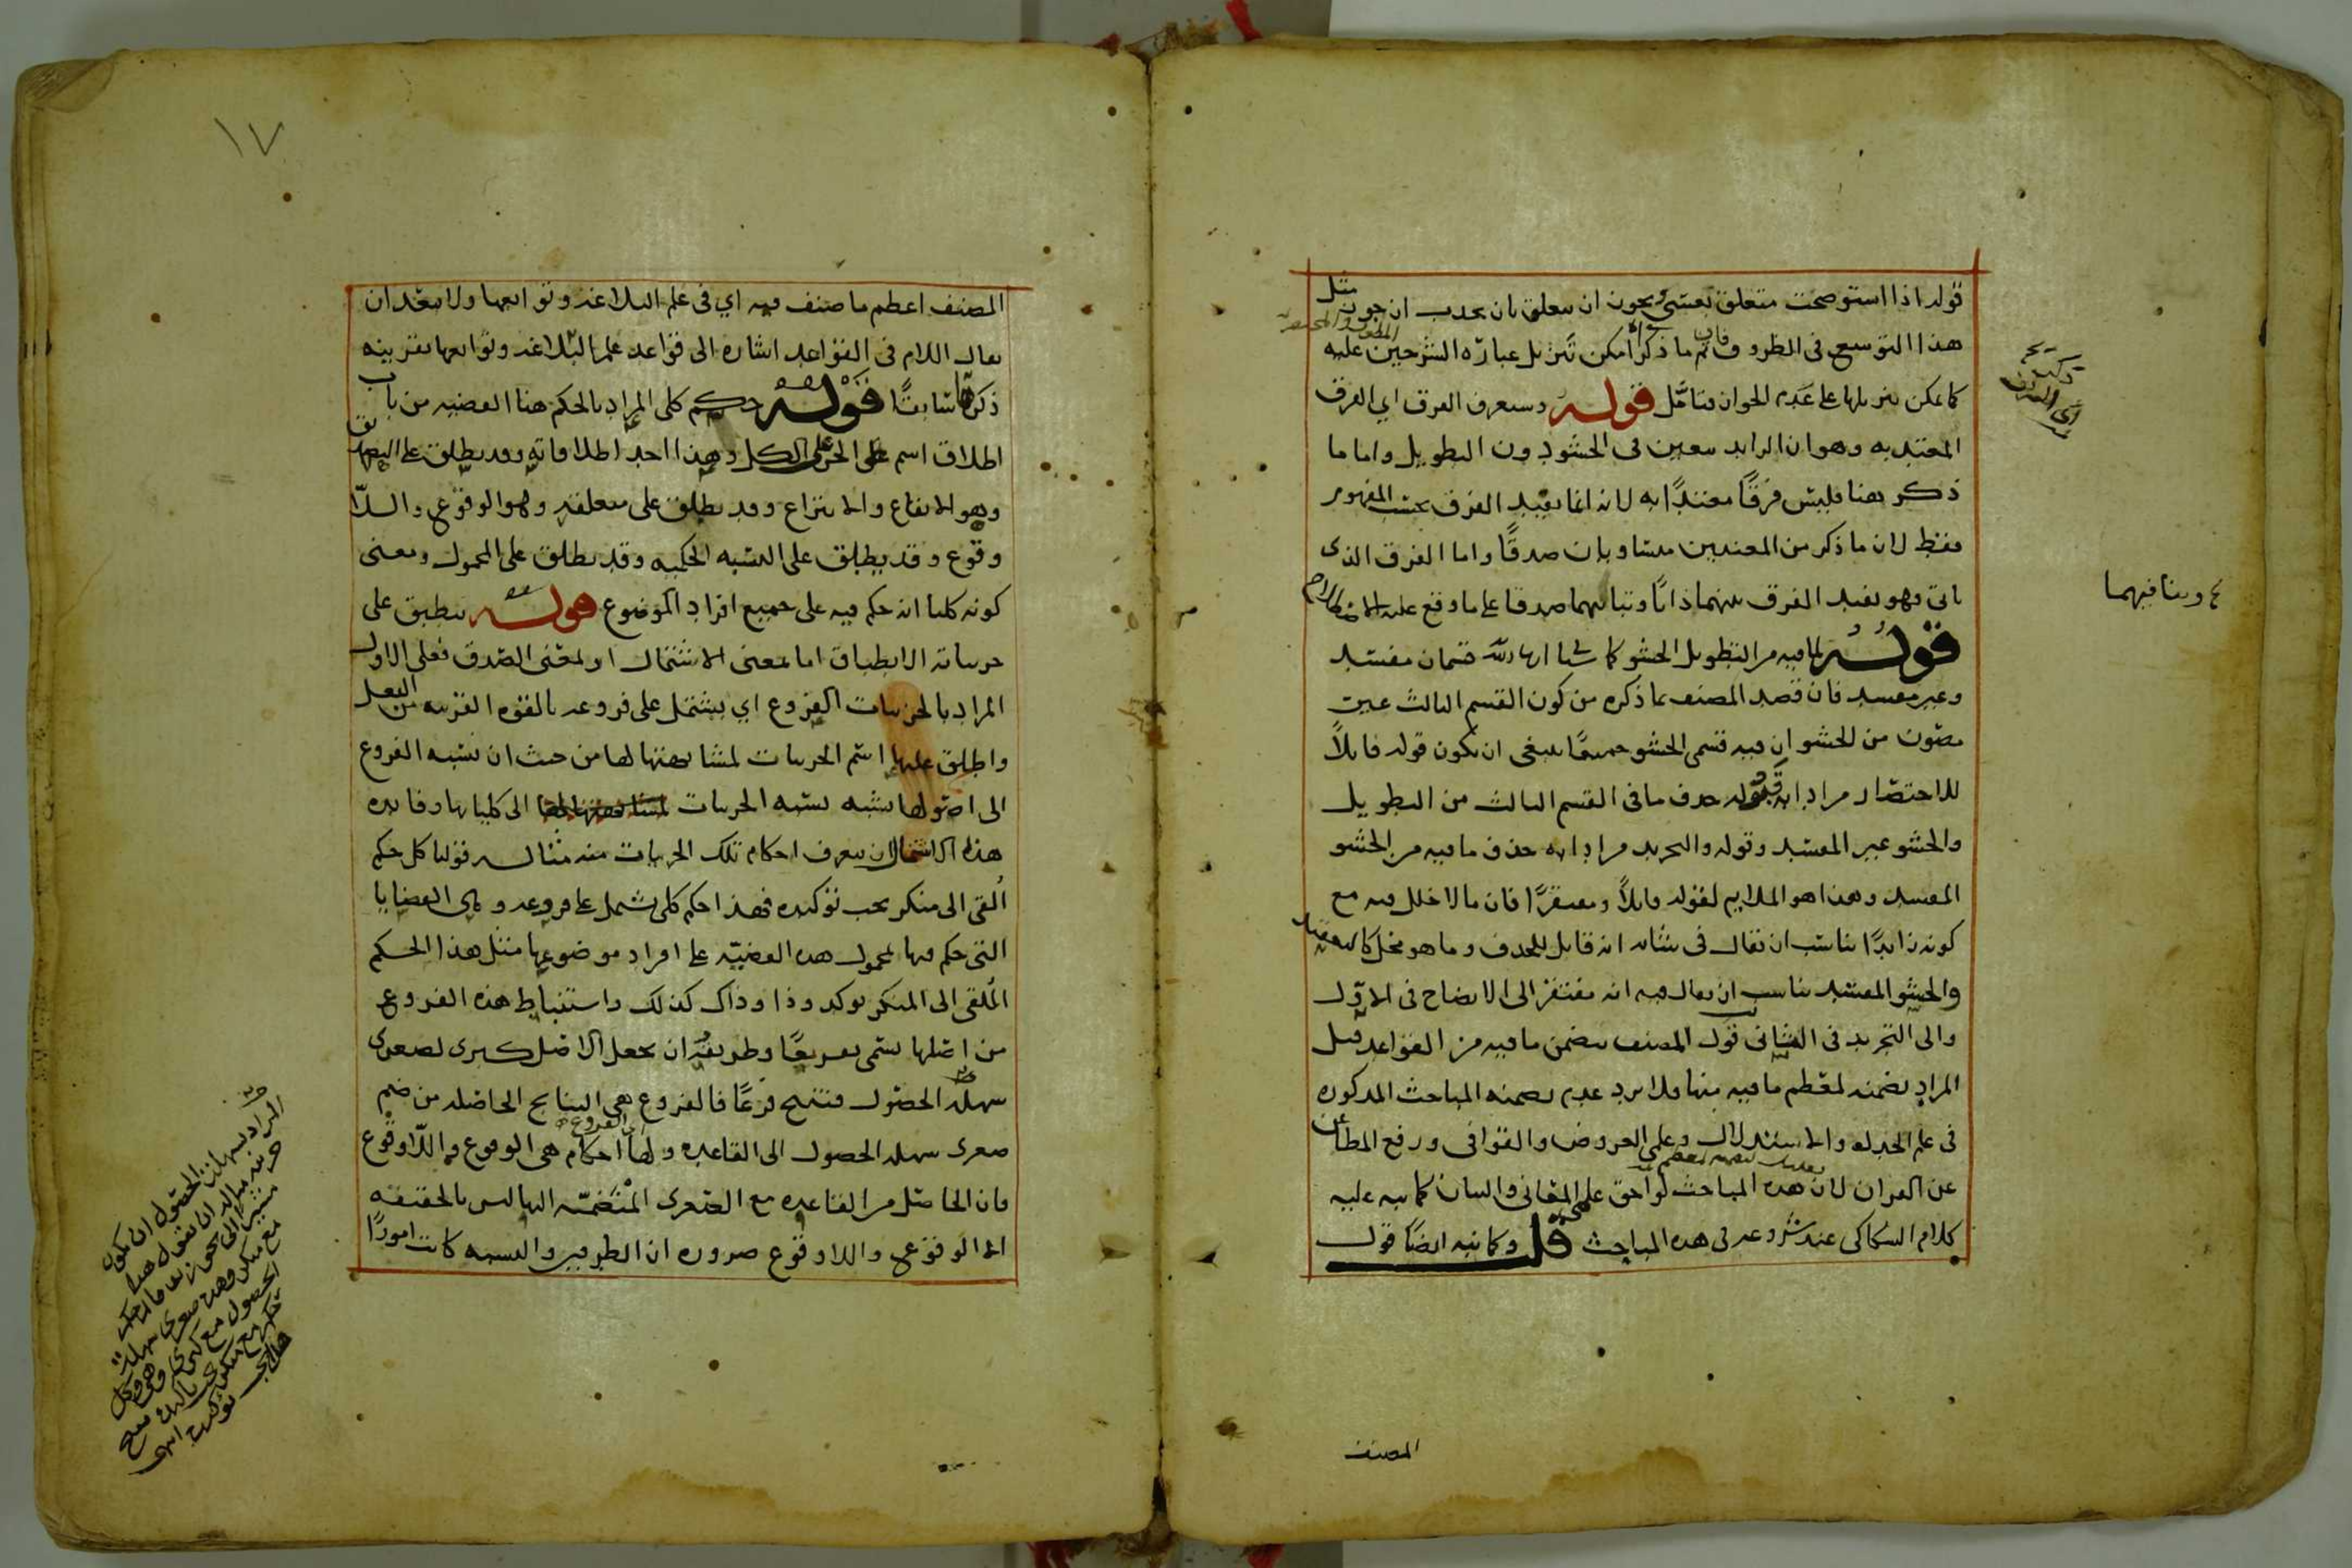 قوله اذا استوضحت متعلق بعشى ويجوز ان يتعلق بان يحدب ان جوز مثل
هذا التوسع فى الظروف فان تم ما ذكر امكن تنزيل عبارة الشرحين عليه
كما يمكن تنزيلها على عدم الجواز فتامل قوله وستعرف الفرق اي الفرق
المعتد به وهو ان الزايد متعين فى الحشو دون التطويل واما ما
ذكر هنا فليس فرقًا معتدًا به لانه انما يفيد الفرق بحسب المفهوم
فقط لان ما ذكر من المعنيين متساويان صدقًا واما الفرق الذى
ياتى فهو يفيد الفرق بينهما ذاتًا وتباينهما صدقا على ما وقع عليه الاصطلاح
قوله لما فيه من التطويل الحشو كما شيا ان شا الله قسمان مفسد
وغير مفسد فان قصد المصنف بما ذكره من كون القسم الثالث غير
مصون من الحشو ان فيه قسمى الحشو جميعًا ينبغى ان يكون قوله قابلاً
للاختصار مرادا به قبوله حذف ما فى القسم الثالث من التطويل
والحشو غير المفسد وقوله والتجريد مرادا به حذف ما فيه من الحشو
المفسد وهذا هو الملايم لقوله قابلاً ومفتقرًا فان ما لا خلل فيه مع
كونه زايدًا يناسب ان يقال فى شانه انه قابل للحذف وما هو مخل كالتعقيد
والحشو المفسد يناسب ان يقال فيه انه مفتقر الى الايضاح فى الاول
والى التجريد فى الثانى قول المصنف يتضمن ما فيه من القواعد قيل
المراد تضمنه لمعظم ما فيه منها فلا يرد عدم تضمنه المباحث المذكوره
فى علم الجدل والاستدلال وعلمى العروض والقوافى ورفع المطاعن
عن القران لان هذه المباحث لواحق علمى المعانى والبيان كما نبه عليه
كلام السكاكى عند شروعه فى هذه المباحث قلت وكما نبه ايضًا قول
المصنف
ع وينافيهما
١٧
المصنف اعظم ما صنف فيه اي فى علم البلاغه وتوابعها ولا يبعد ان
يقال اللام فى القواعد اشاره الى قواعد علم البلاغه وتوابعها بقرينه
ذكرها سابقًا قوله حكم كلى المراد بالحكم هنا القضيه من باب
اطلاق اسم الجزء على الكل وهذا احد اطلاقاته وقد يطلق على التصديق
وهو الايقاع والانتزاع وقد يطلق على متعلقه وهو الوقوع واللا
وقوع وقد يطلق على النسبه الحكميه وقد يطلق على المحمول ومعنى
كونه كليا انه حكم فيه على جميع افراد الموضوع قوله ينطبق على
جزياته الانطباق اما بمعنى الاشتمال او بمعنى الصدق فعلى الاول
المراد بالجزييات الفروع اي يشتمل على فروعه بالقوه القريبه من الفعل
واطلق عليها اسم الجزيات لمشابهتها لها من حيث ان نسبه الفروع
الى اصولها تشبه نسبه الجزيات الى كلياتها وفايده
هذا الاشتمال ان يتعرف احكام تلك الجزيات منه مثاله قولنا كل حكم
اُلقى الى منكر يجب توكيده فهذا حكم كلى يشتمل على فروعه وهى القضايا
التى حكم فيها بمحمول هذه القضيه على افراد موضوعها مثل هذا الحكم
المُلقى الى المنكر يوكد وذا وذاك كذلك واستنباط هذه الفروع
من اصلها يسمى تفريعًا وطريقه ان يجعل الاصل كبرى لصغرى
سهله الحصول فتنتج فرعًا فالفروع هى النتايج الحاصله من ضم
صغرى سهله الحصول الى القاعده ولها احكام هى الوقوع واللاوقوع
فان الحاصل من القاعده مع الصغرى المنضمه اليها ليس بالحقيقه
الا الوقوع واللاوقوع ضروره ان الطرفين والنسبه كانت امورًا
المراد بسهلة الحصول ان يكون